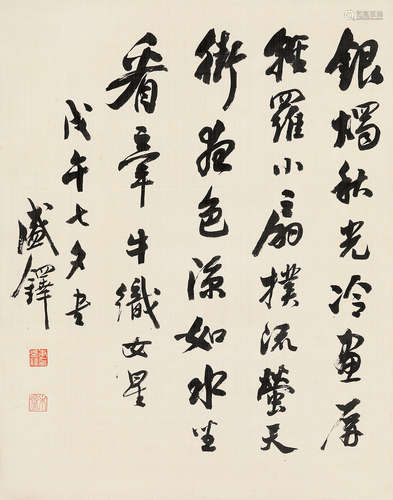 銀燭秋光冷畫屏
輕羅小扇撲流螢天
街夜色涼如水坐
看牽牛織女星
戊午七夕書
盛鐸